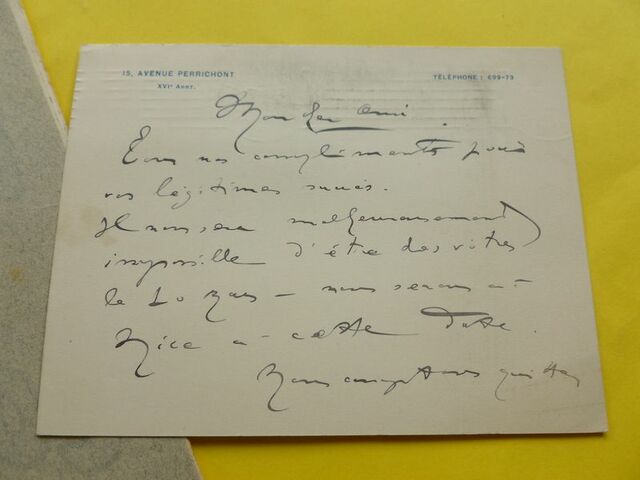 15, AVENUE PERRICHONT
XVIe ARRT.
TÉLÉPHONE : 699-73
Mon cher Ami
Tous nos compliments pour
vos légitimes succès.
Il nous sera malheureusement
impossible d'être des vôtres
le 20 Mars – nous serons à
Nice à cette date.
Nous comptons quitter